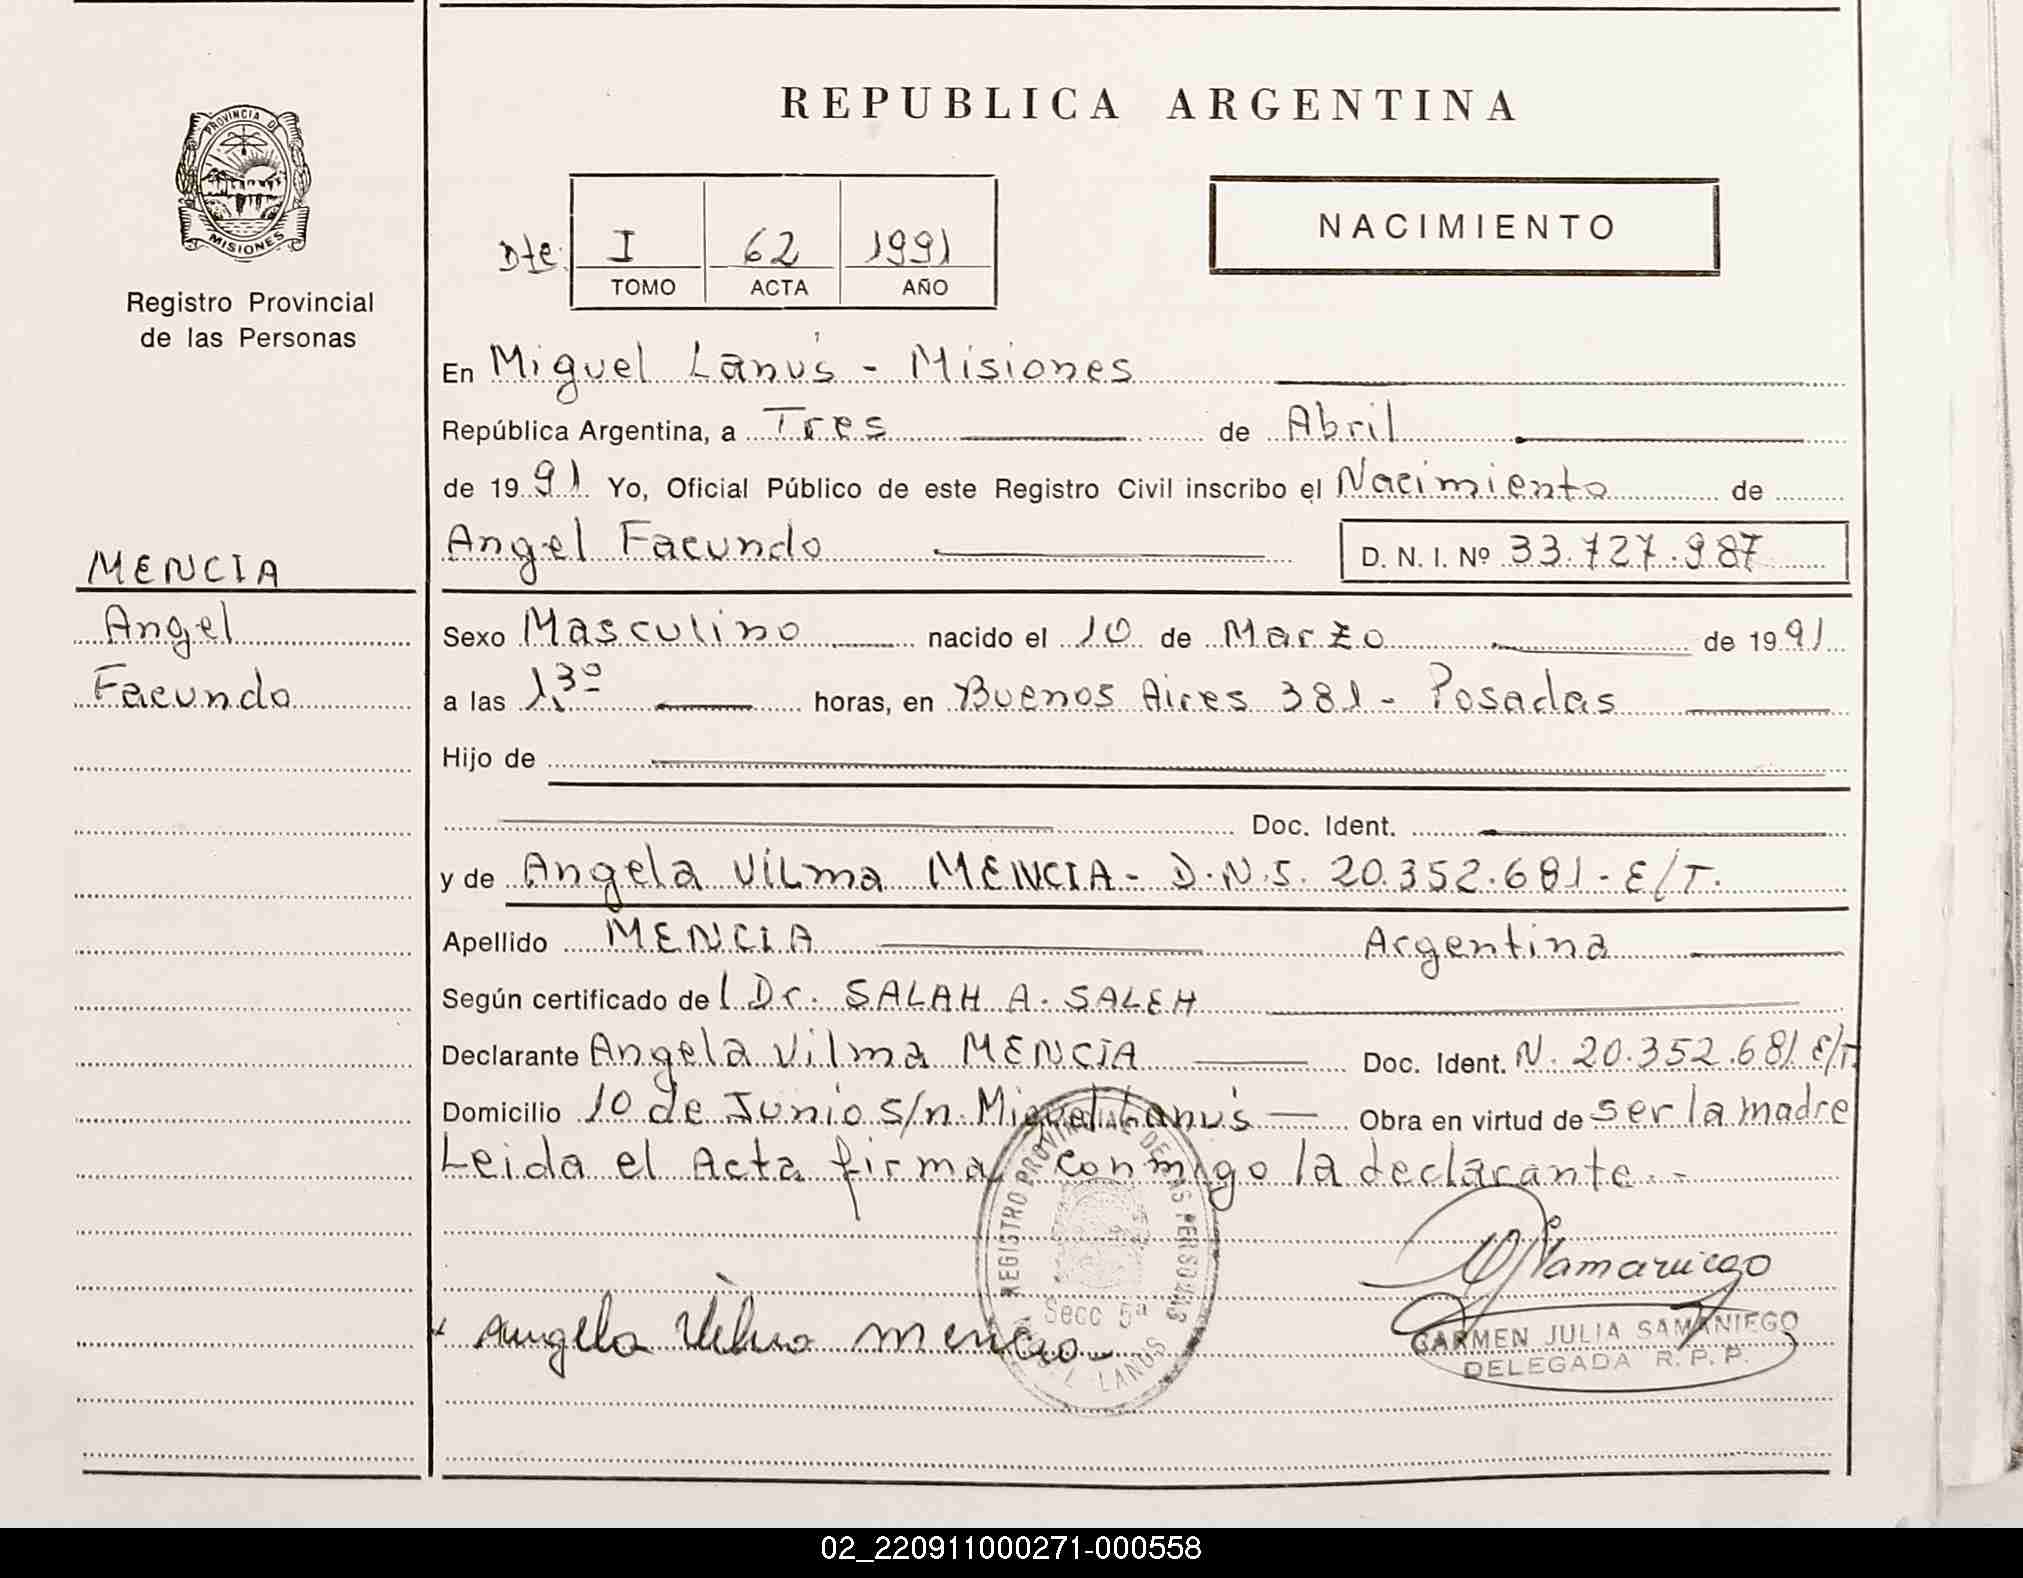 REPUBLICA ARGENTINA
PROVINCIA DE
MISIONES
Registro Provincial
de las Personas
NACIMIENTO
Dte: I 62 1991
TOMO ACTA AÑO
En Miguel Lanús - Misiones
República Argentina, a Tres de Abril
de 1991 Yo, Oficial Público de este Registro Civil inscribo el Nacimiento de
Angel Facundo D. N. I. Nº 33.727.987
MENCIA
Angel
Facundo
Sexo Masculino nacido el 10 de Marzo de 1991
a las 13º horas, en Buenos Aires 381 - Posadas
Hijo de
Doc. Ident.
y de Angela Vilma MENCIA - D.N.I. 20.352.681 - E/T.
Apellido MENCIA Argentina
Según certificado del Dr. SALAH A. SALEH
Declarante Angela Vilma MENCIA Doc. Ident. N. 20.352.681 E/T.
Domicilio 10 de Junio s/n. Miguel Lanús Obra en virtud de ser la madre
Leida el Acta firma conmigo la declarante.-
REGISTRO PROVINCIAL DE LAS PERSONAS
Secc 5ª
LANUS
Angela Vilma Mencia
Samaniego
CARMEN JULIA SAMANIEGO
DELEGADA R. P. P.
02_220911000271-000558